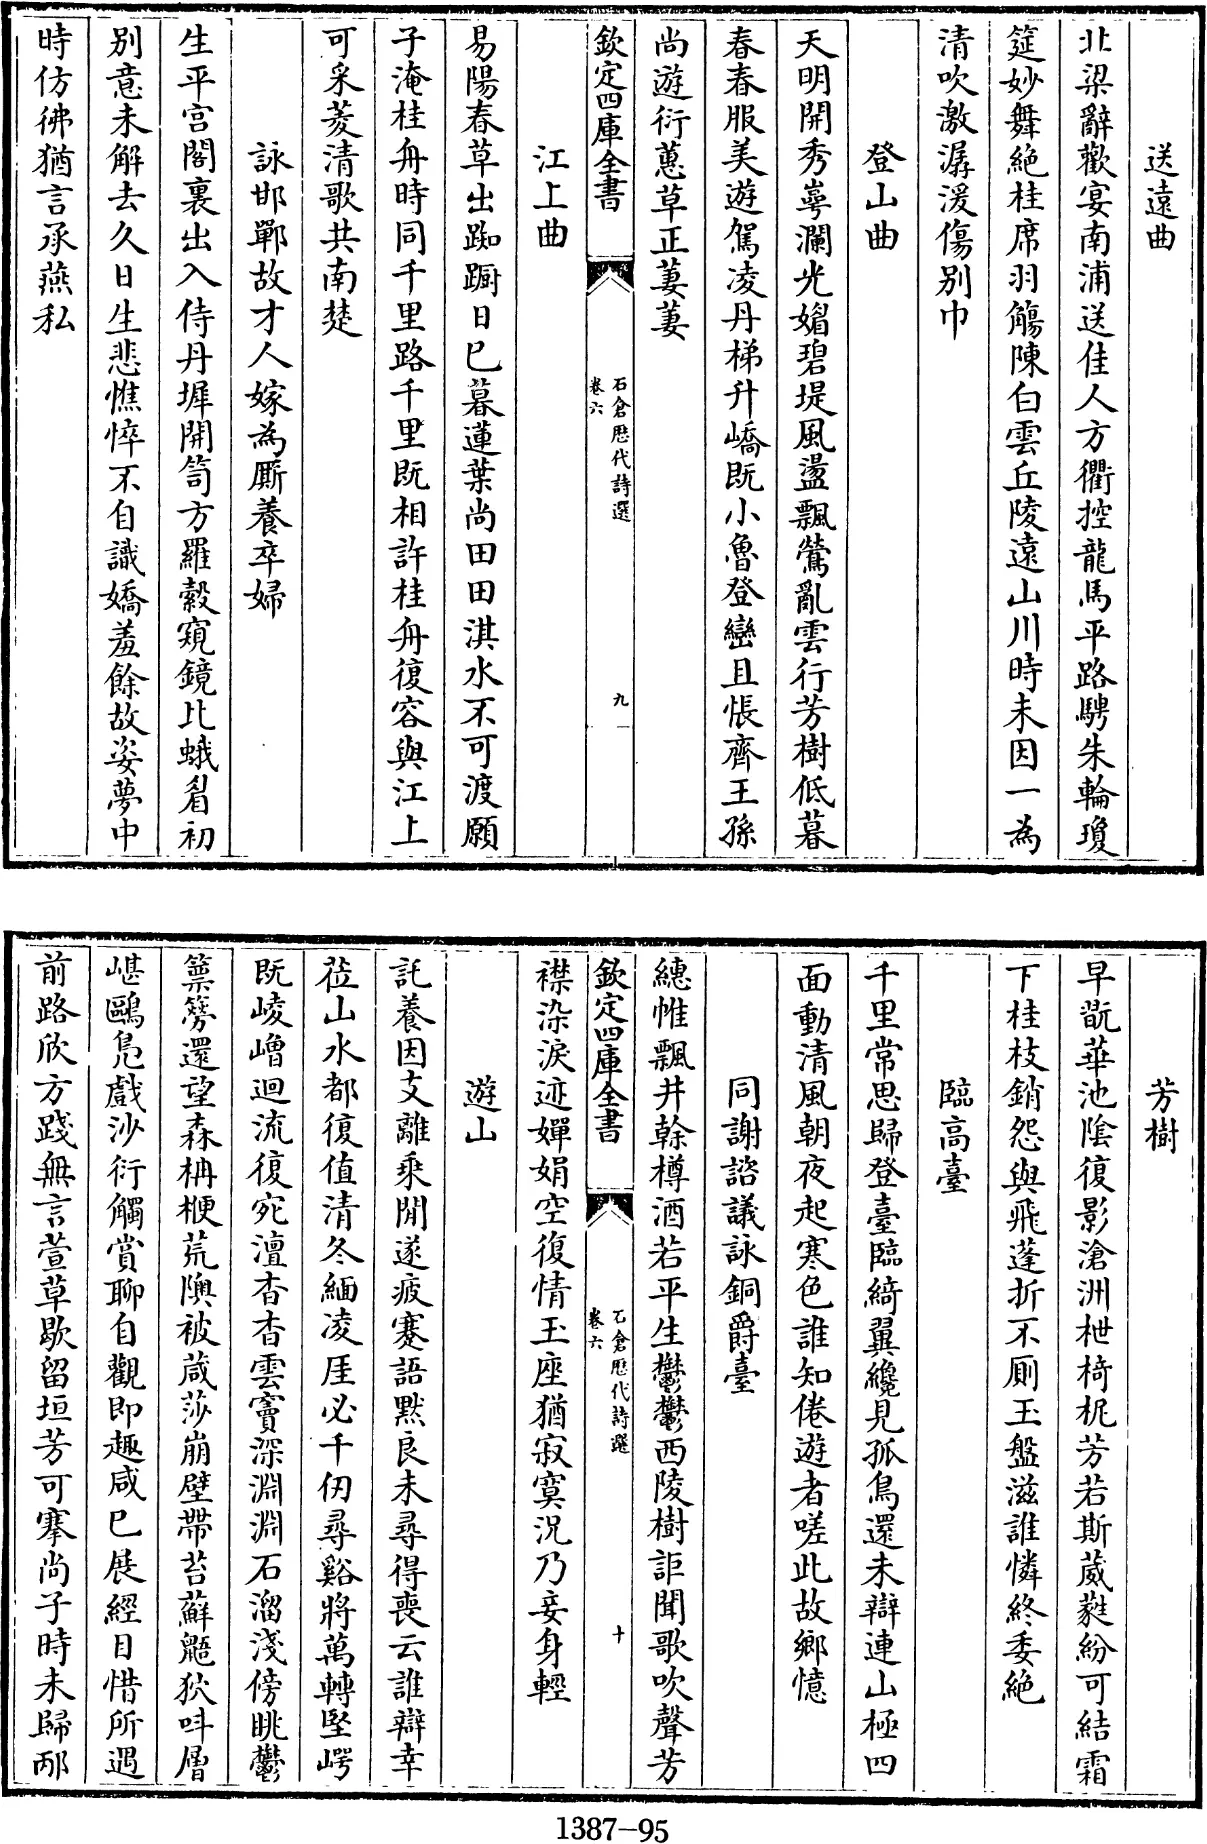 送遠曲
北梁辭歡宴南浦送佳人方衢控龍馬平路騁朱輪瓊
筵妙舞絕桂席羽觴陳白雲丘陵遠山川時未因一為
清吹激潺湲傷別巾
登山曲
天明開秀崿瀾光媚碧堤風盪飄鶯亂雲行芳樹低暮
春春服美遊駕凌丹梯升嶠既小魯登巒且悵齊王孫
尚遊衍蕙草正萋萋
欽定四庫全書
石倉歷代詩選
卷六
九
江上曲
易陽春草出踟躕日已暮蓮葉尚田田淇水不可渡願
子淹桂舟時同千里路千里既相許桂舟復容與江上
可采菱清歌共南楚
詠邯鄲故才人嫁為厮養卒婦
生平宫閣裏出入侍丹墀開笥方羅縠窺鏡比蛾眉初
別意未解去久日生悲憔悴不自識嬌羞餘故姿夢中
時仿彿猶言承燕私
芳樹
早翫華池陰復影滄洲枻椅柅芳若斯葳蕤紛可結霜
下桂枝銷怨與飛蓬折不厠玉盤滋誰憐終委絶
臨高臺
千里常思歸登臺臨綺翼纔見孤鳥還未辯連山極四
面動清風朝夜起寒色誰知倦遊者嗟此故鄉憶
同謝諮議詠銅爵臺
繐帷飄井幹樽酒若平生鬱鬱西陵樹詎聞歌吹聲芳
欽定四庫全書
石倉歷代詩選
卷六
十
襟染淚迹嬋娟空復情玉座猶寂寞況乃妾身輕
遊山
託養因支離乘閒遂疲蹇語默良未尋得喪云誰辯幸
莅山水都復值清冬緬凌厓必千仞尋谿將萬轉堅崿
既崚嶒迴流復宛澶杳杳雲竇深淵淵石溜淺傍眺鬱
篻簩還望森柟楩荒隩被葴莎崩壁帶苔蘚鼯狖呌層
嵁鷗鳬戲沙衍觸賞聊自觀即趣咸已展經目惜所遇
前路欣方踐無言萱草歇留垣芳可搴尚子時未歸邴
1387-95